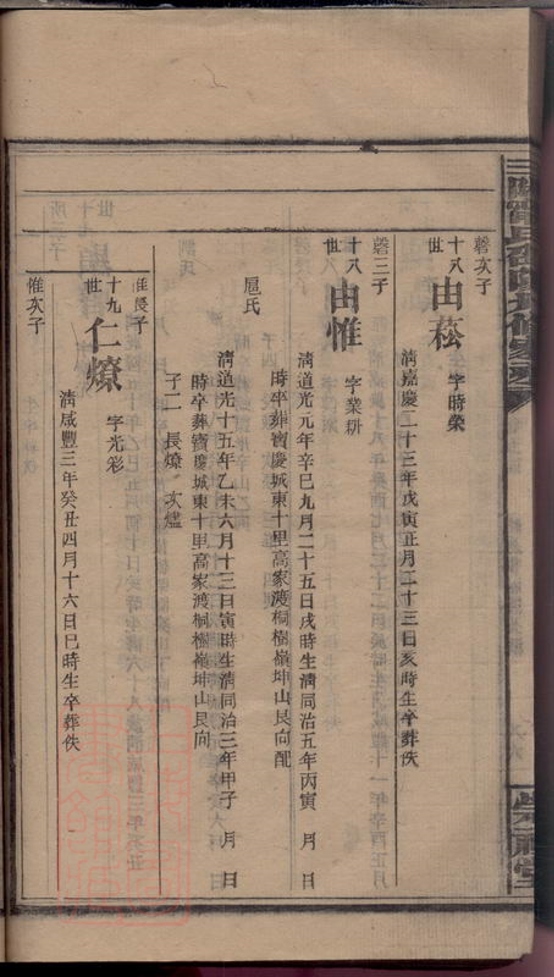 磬次子
十八世 由菘 字時榮
清嘉慶二十三年戊寅正月二十三日亥時生卒葬佚
磬三子
十八世 由惟 字業耕
清道光元年辛巳九月二十五日戌時生清同治五年丙寅 月 日
時卒葬寶慶城東十里高家渡桐樹嶺坤山艮向配
扈氏
清道光十五年乙未六月十三日寅時生清同治三年甲子 月 日
時卒葬寶慶城東十里高家渡桐樹嶺坤山艮向
子二 長燎 次燼
惟長子
十九世 仁燎 字光彩
清咸豐三年癸丑四月十六日巳時生卒葬佚
惟次子